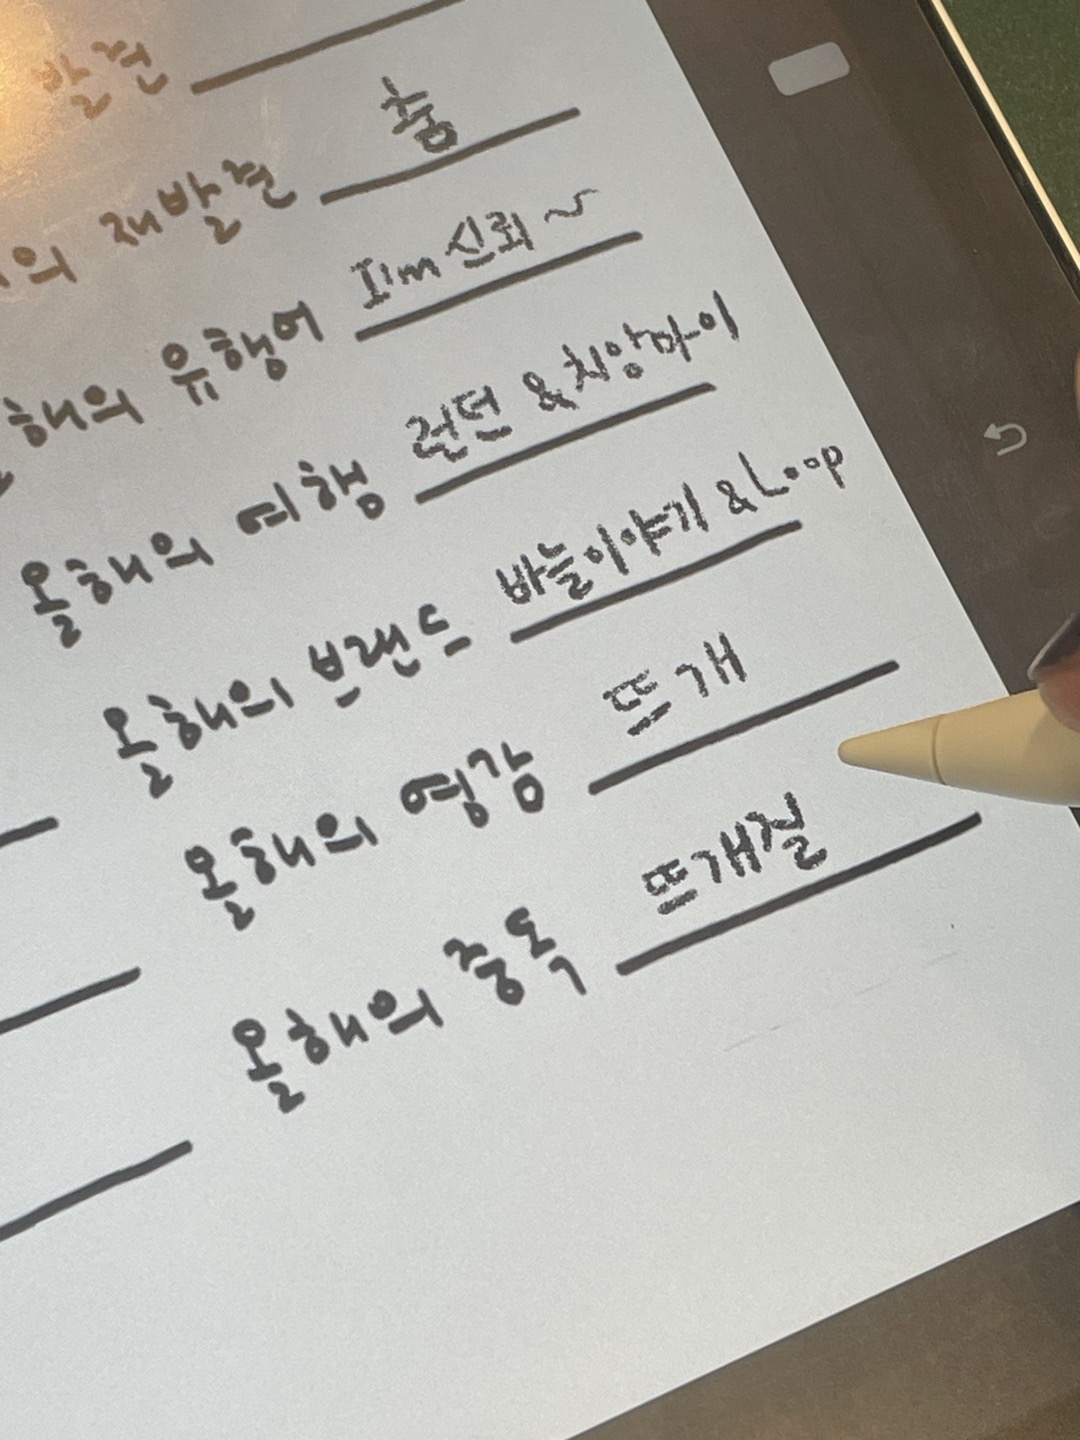 발견
의 재발견 춤
해의 유행어 I'm 신뢰~
올해의 여행 런던 & 치앙마이
올해의 브랜드 바늘이야기 & Loop
올해의 영감 뜨개
올해의 중독 뜨개질